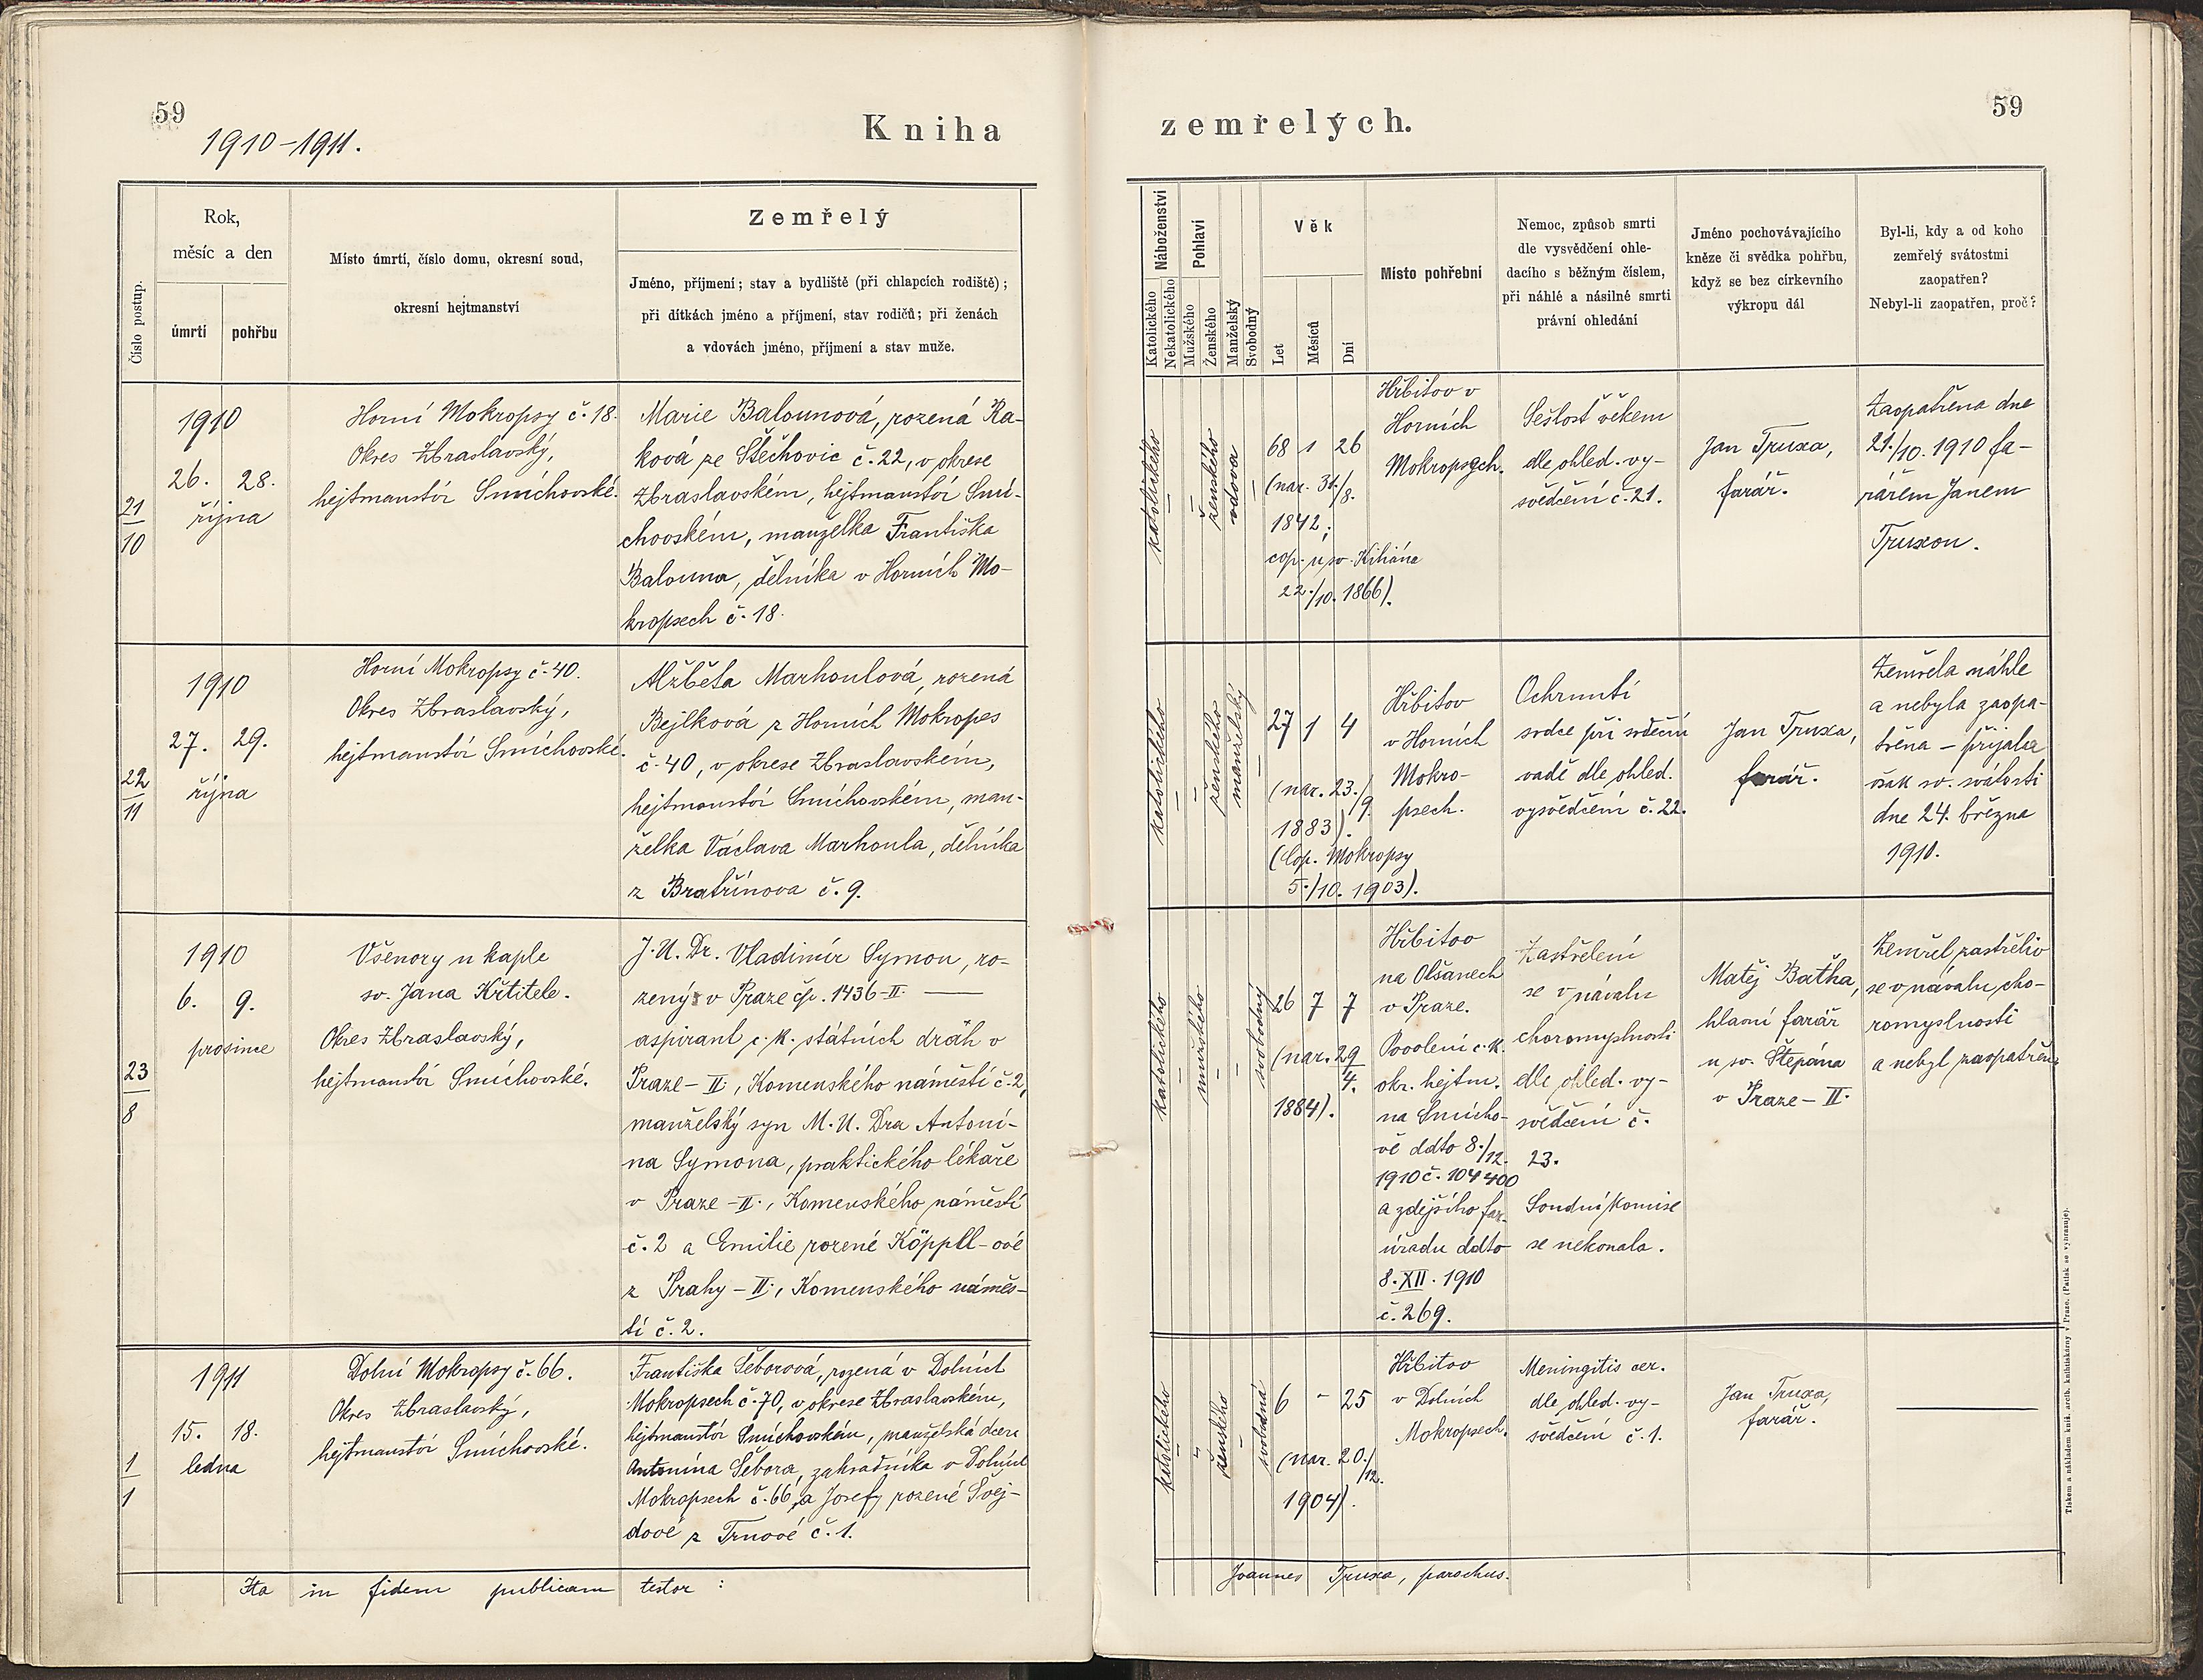 59
1910-1911.
Kniha
Číslo postup.
Rok,
měsíc a den
úmrtí
pohřbu
Místo úmrtí, číslo domu, okresní soud,
okresní hejtmanství
Zemřelý
Jméno, příjmení; stav a bydliště (při chlapcích rodiště);
při dítkách jméno a příjmení, stav rodičů; při ženách
a vdovách jméno, příjmení a stav muže.
21
10
1910
26. 28.
října
Horní Mokropsy č. 18.
Okres Zbraslavský,
hejtmanství Smíchovské.
Marie Balounová, rozená Ra-
ková ze Štěchovic č. 22, v okrese
Zbraslavském, hejtmanství Smí-
chovském, manželka Františka
Balouna, dělníka v Horních Mo-
kropsech č. 18.
22
11
1910
27. 29.
října
Horní Mokropsy č. 40.
Okres Zbraslavský,
hejtmanství Smíchovské.
Alžběta Marhoulová, rozená
Bejlková z Horních Mokropes
č. 40, v okrese Zbraslavském,
hejtmanství Smíchovském, man-
želka Václava Marhoula, dělníka
z Bratřínova č. 9.
23
8
1910
6. 9.
prosince
Všenory u kaple
sv. Jana Křtitele.
Okres Zbraslavský,
hejtmanství Smíchovské.
J. U. Dr. Vladimír Symon, ro-
zený v Praze čp. 1436-II.
aspirant c. k. státních drah v
Praze-II., Komenského náměstí č. 2,
manželský syn M. U. Dra Antoní-
na Symona, praktického lékaře
v Praze-II., Komenského náměstí
č. 2 a Emilie rozené Köppll-ové
z Prahy-II., Komenského náměs-
tí č. 2.
1
1
1911
15. 18.
ledna
Dolní Mokropsy č. 66.
Okres Zbraslavský,
hejtmanství Smíchovské.
Františka Šeborová, rozená v Dolních
Mokropsech č. 70, v okrese Zbraslavském,
hejtmanství Smíchovském, manželská dcera
Antonína Šebora, zahradníka v Dolních
Mokropsech č. 66, a Josefy rozené Švej-
dové z Trnové č. 1.
Ita in fidem publicam testor :
59
zemřelých.
Náboženství
Katolického
Nekatolického
Pohlaví
Mužského
Ženského
Manželský
Svobodný
Věk
Let
Měsíců
Dní
Místo pohřební
Nemoc, způsob smrti
dle vysvědčení ohle-
dacího s běžným číslem,
při náhlé a násilné smrti
právní ohledání
Jméno pochovávajícího
kněze či svědka pohřbu,
když se bez církevního
výkropu dál
Byl-li, kdy a od koho
zemřelý svátostmi
zaopatřen?
Nebyl-li zaopatřen, proč?
katolického
ženského
vdova
68 1 26
(nar. 31./8.
1842;
cop. u sv. Kiliána
22./10. 1866).
Hřbitov v
Horních
Mokropsech.
Sešlost věkem
dle ohled. vy-
svědčení č. 21.
Jan Truxa,
farář.
Zaopatřena dne
21./10. 1910 fa-
rářem Janem
Truxou.
katolického
ženského
manželský
27 1 4
(nar. 23./9.
1883).
(Cop. Mokropsy
5./10. 1903).
Hřbitov
v Horních
Mokro-
psech.
Ochrnutí
srdce při srdeční
vadě dle ohled.
vysvědčení č. 22.
Jan Truxa,
farář.
Zemřela náhle
a nebyla zaopa-
třena - přijala
však sv. svátosti
dne 24. března
1910.
katolického
mužského
svobodný
26 7 7
(nar. 29/4.
1884).
Hřbitov
na Olšanech
v Praze.
Povolení c. k.
okr. hejtm.
na Smícho-
vě ddto 8./12.
1910 č. 104400
a zdejšího far.
úřadu ddto
8. XII. 1910
č. 269.
Zastřelení
se v návalu
choromyslnosti
dle ohled. vy-
svědčení č.
23.
Soudní komise
se nekonala.
Matěj Baťha,
hlavní farář
u sv. Štěpána
v Praze-II.
Zemřel zastřeliv
se v návalu cho-
romyslnosti
a nebyl zaopatřen.
katolického
ženského
svobodná
6 - 25
(nar. 20./12.
1904).
Hřbitov
v Dolních
Mokropsech.
Meningitis cer.
dle ohled. vy-
svědčení č. 1.
Jan Truxa,
farář.
Joannes Truxa, parochus.
Tiskem a nákladem kníž. arcib. knihtiskárny v Praze. (Patisk se vyhrazuje).